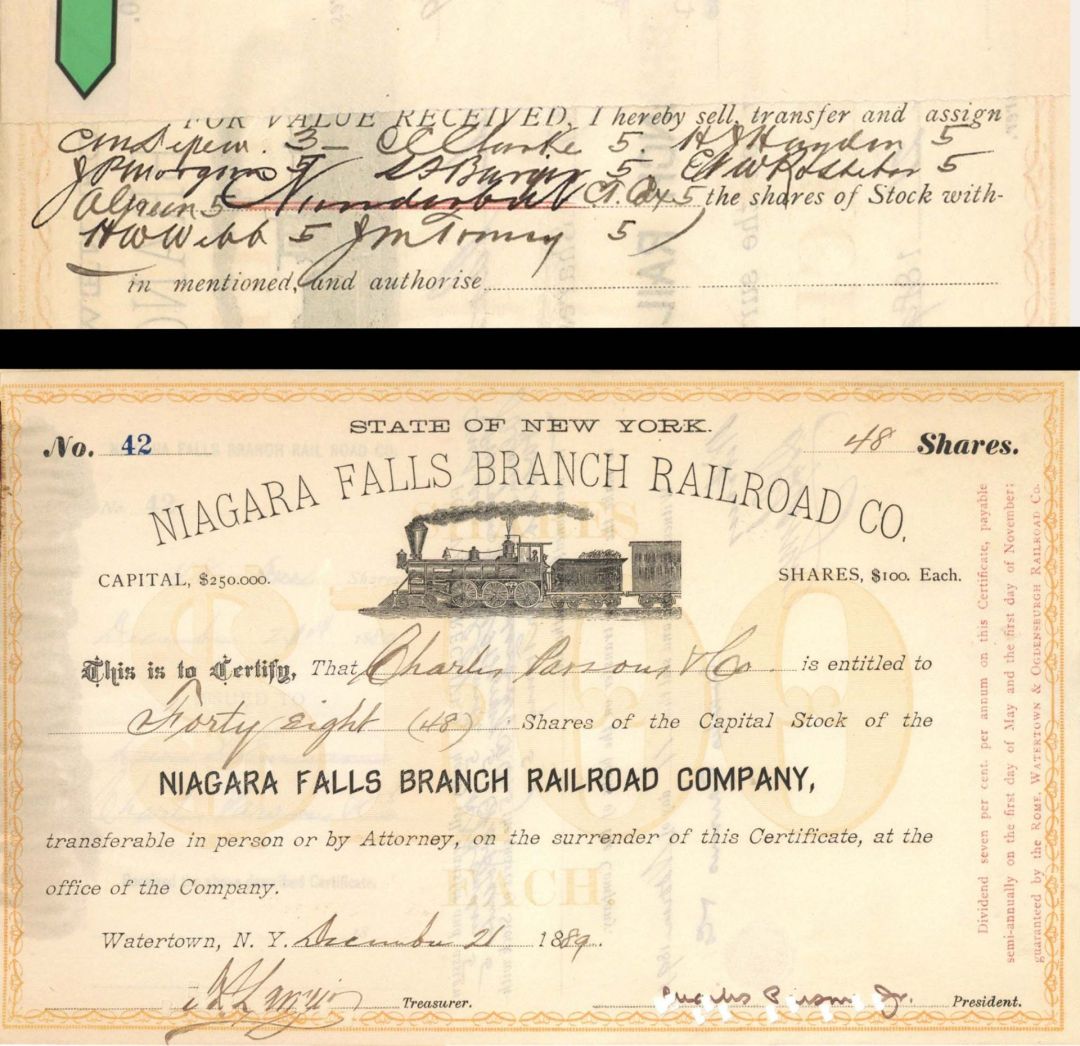 FOR VALUE RECEIVED, I hereby sell, transfer and assign
C M Depew. 3 — C C Clarke 5. H J Hayden 5
J P Morgan 5 5 C W 5
5 5 the shares of Stock with-
H W Webb 5 J M Toucey 5
in mentioned, and authorise
STATE OF NEW YORK.
No. 42
48 Shares.
NIAGARA FALLS BRANCH RAILROAD CO.
CAPITAL, $250.000.
SHARES, $100. Each.
This is to Certify, That Charles Parsons & Co. is entitled to
Forty eight (48) Shares of the Capital Stock of the
NIAGARA FALLS BRANCH RAILROAD COMPANY,
transferable in person or by Attorney, on the surrender of this Certificate, at the
office of the Company.
EACH.
Watertown, N. Y. December 21 1889.
Treasurer.
Charles Parsons Jr. President.
Dividend seven per cent. per annum on this Certificate, payable
semi-annually on the first day of May and the first day of November;
guaranteed by the ROME, WATERTOWN & OGDENSBURGH RAILROAD CO.
SHARES
$100